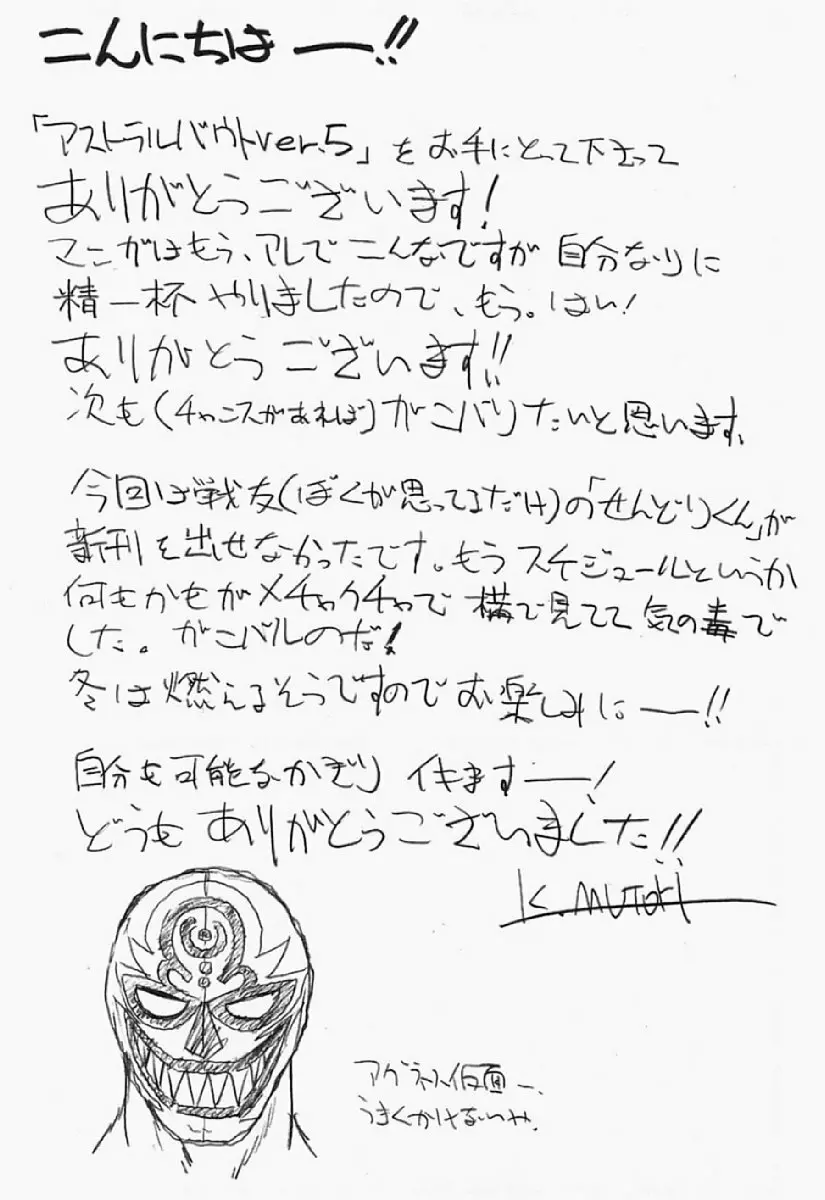 こんにちはー!!
「アストラルバウトver.5」をお手にとって下さって
ありがとうございます!
マンガはもう、アレでこんなですが 自分なりに
精一杯 やりましたので、もう。はい!
ありがとうございます!!
次も(チャンスがあれば)ガンバりたいと思います。
今回は戦友(ぼくが思ってるだけ)の「せんどりくん」が
新刊を出せなかったです。もう スケジュールというか
何もかもがメチャクチャで 横で見てて 気の毒で
した。ガンバルのだ!
冬は燃えるそうですのでお楽しみにー!!
自分も可能なかぎり イキますー!
どうも ありがとうございました!!
K.MUTOKI
アグネス仮面ー。
うまくかけないや。